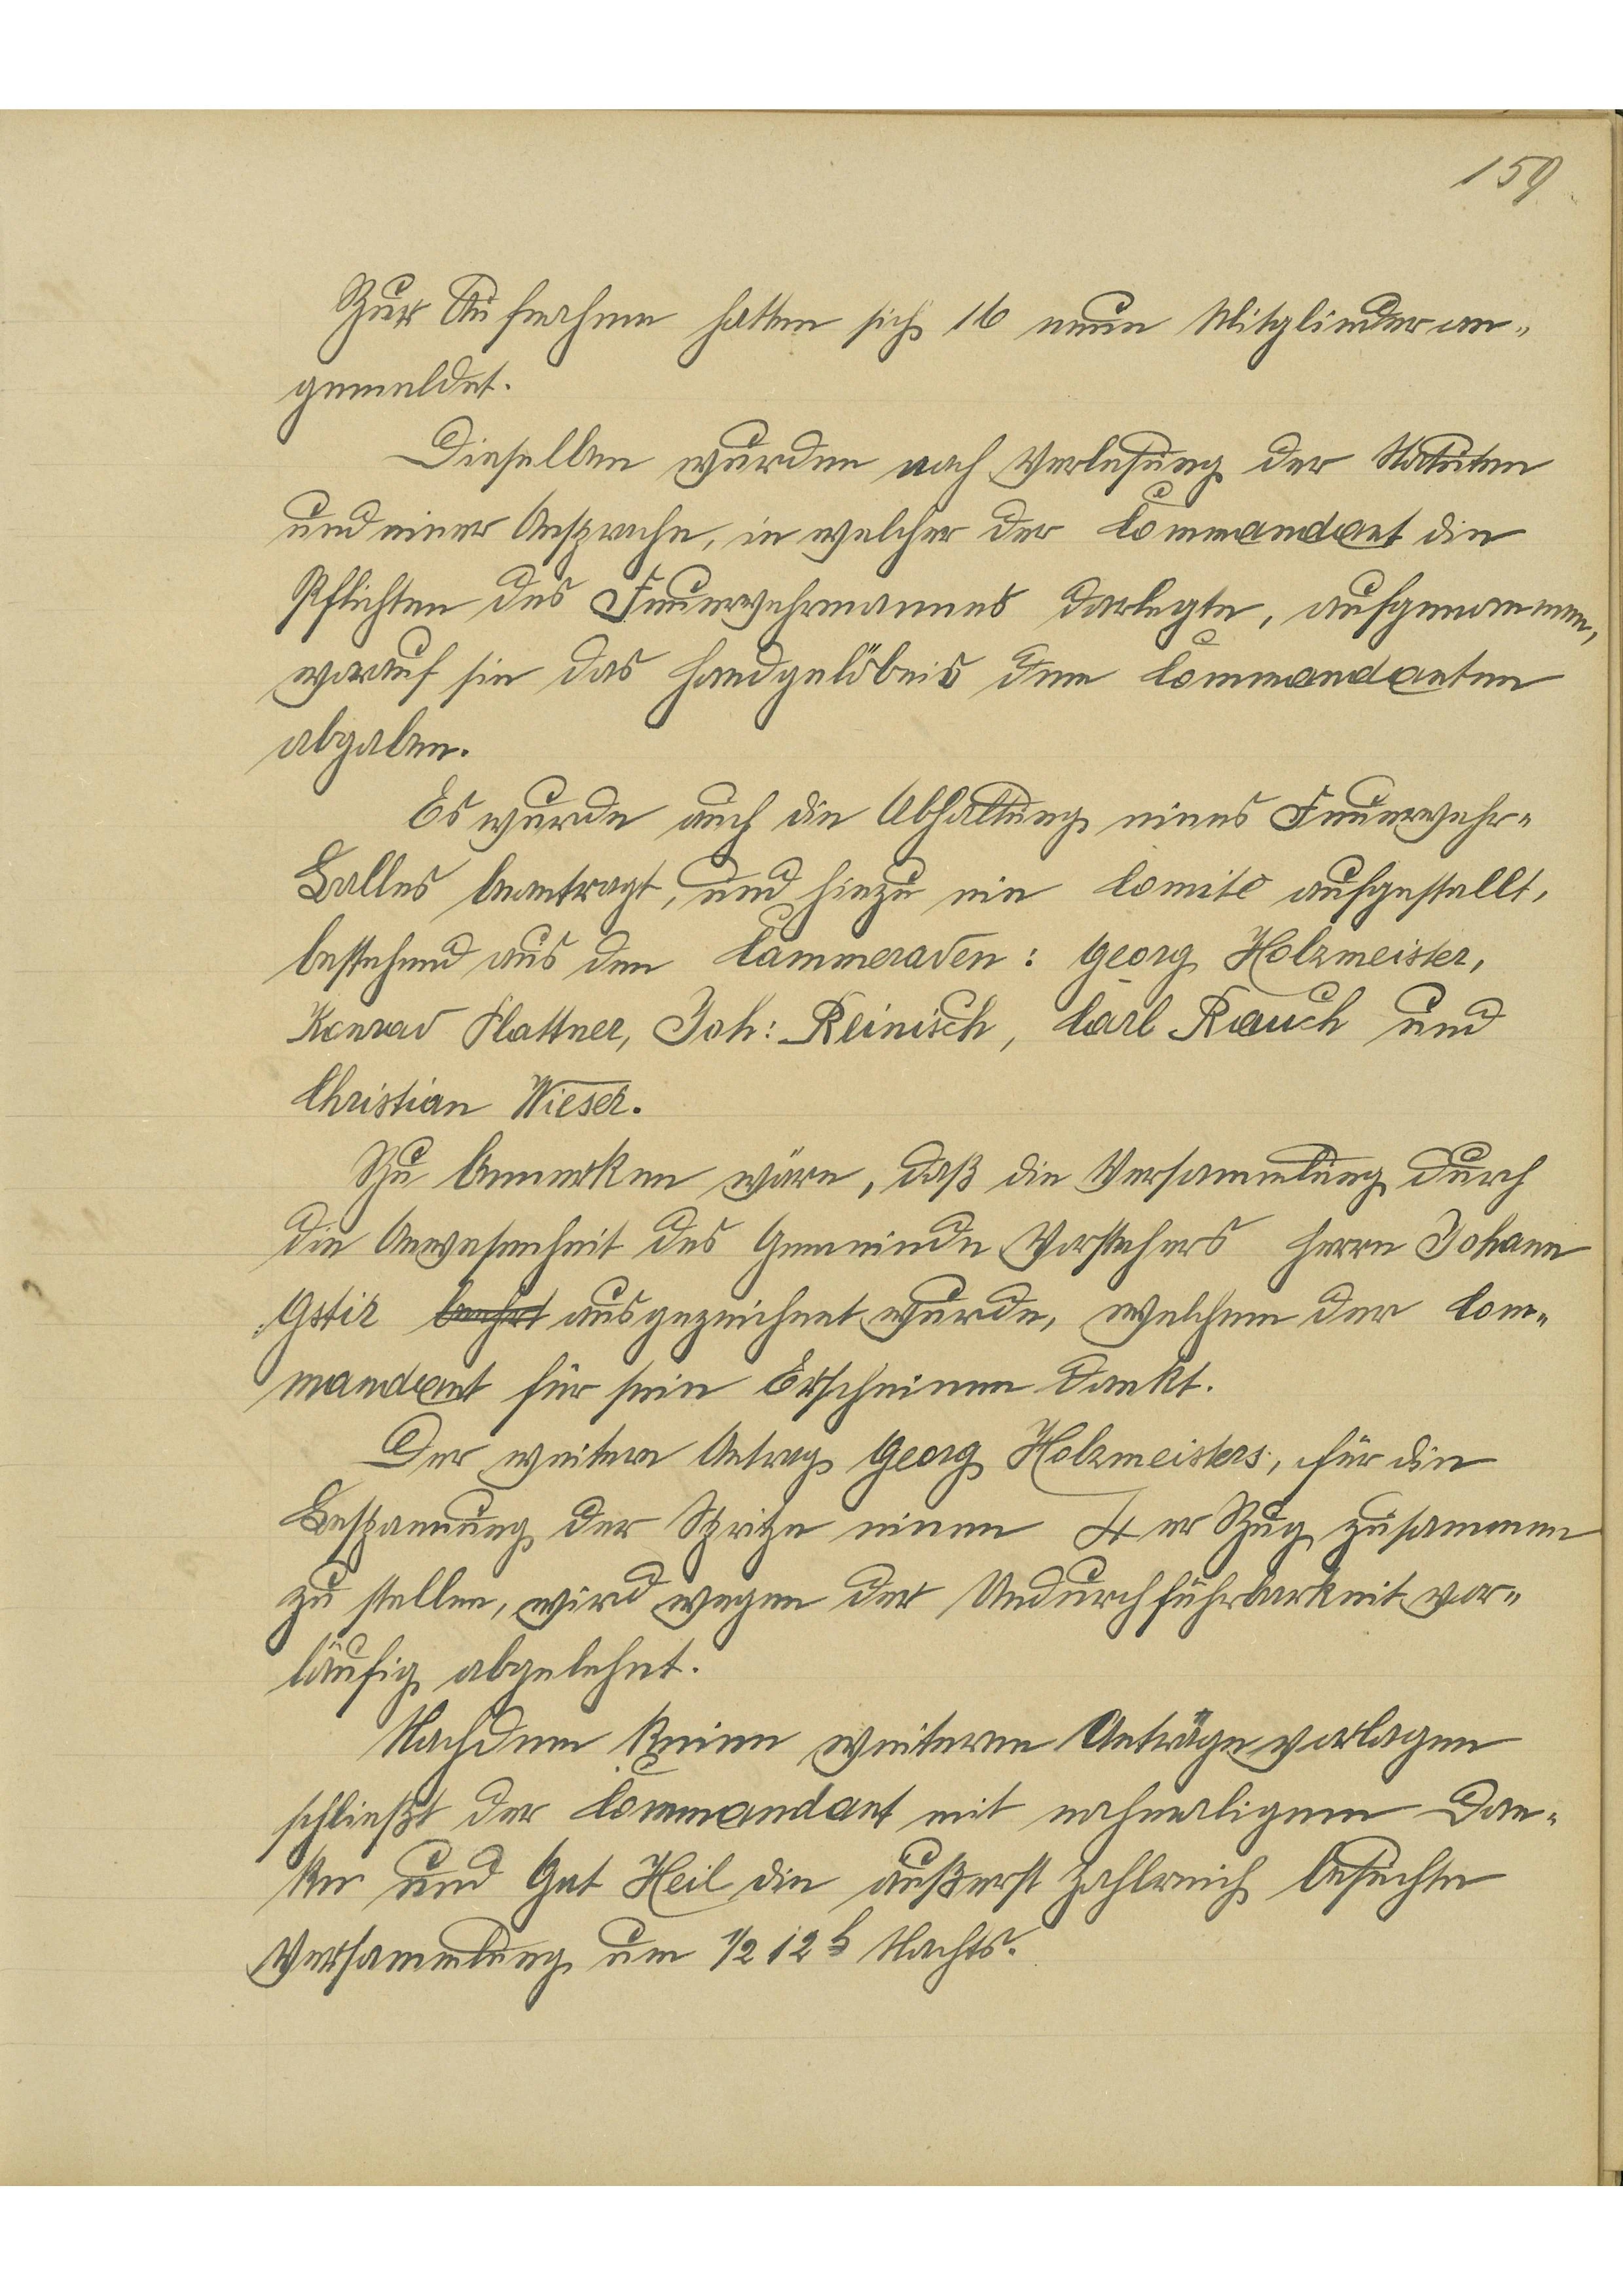 159
Zur Aufnahme hatten sich 16 neue Mitglieder an-
gemeldet.
Dieselben wurden nach Verlesung der Statuten
und einer Ansprache, in welcher der Commandant die
Pflichten des Feuerwehrmannes darlegte, aufgenommen,
worauf sie das Handgelöbnis dem Commandanten
abgaben.
Es wurde auch die Abhaltung eines Feuerwehr-
Balles beantragt, und hiezu ein Comite aufgestellt,
bestehend aus den Cammeraden: Georg Holzmeister,
Konrad Plattner, Joh: Reinisch, Carl Rauch und
Christian Wieser.
Zu bemerken wäre, daß die Versammlung durch
die Anwesenheit des Gemeinde Vorstehers Herrn Johann
Gstir beehrt ausgezeichnet wurde, welchem der Com-
mandant für sein Erscheinen dankt.
Der weitere Antrag Georg Holzmeisters, für die
Bespannung der Spritze einen 4er Zug zusammen
zu stellen, wird wegen der Undurchführbarkeit vor-
läufig abgelehnt.
Nachdem keine weiteren Anträge vorlagen
schließt der Commandant mit nochmaligem Dan-
ke und Gut Heil die äußerst zahlreich besuchte
Versammlung um 1/2 12 h Nachts.